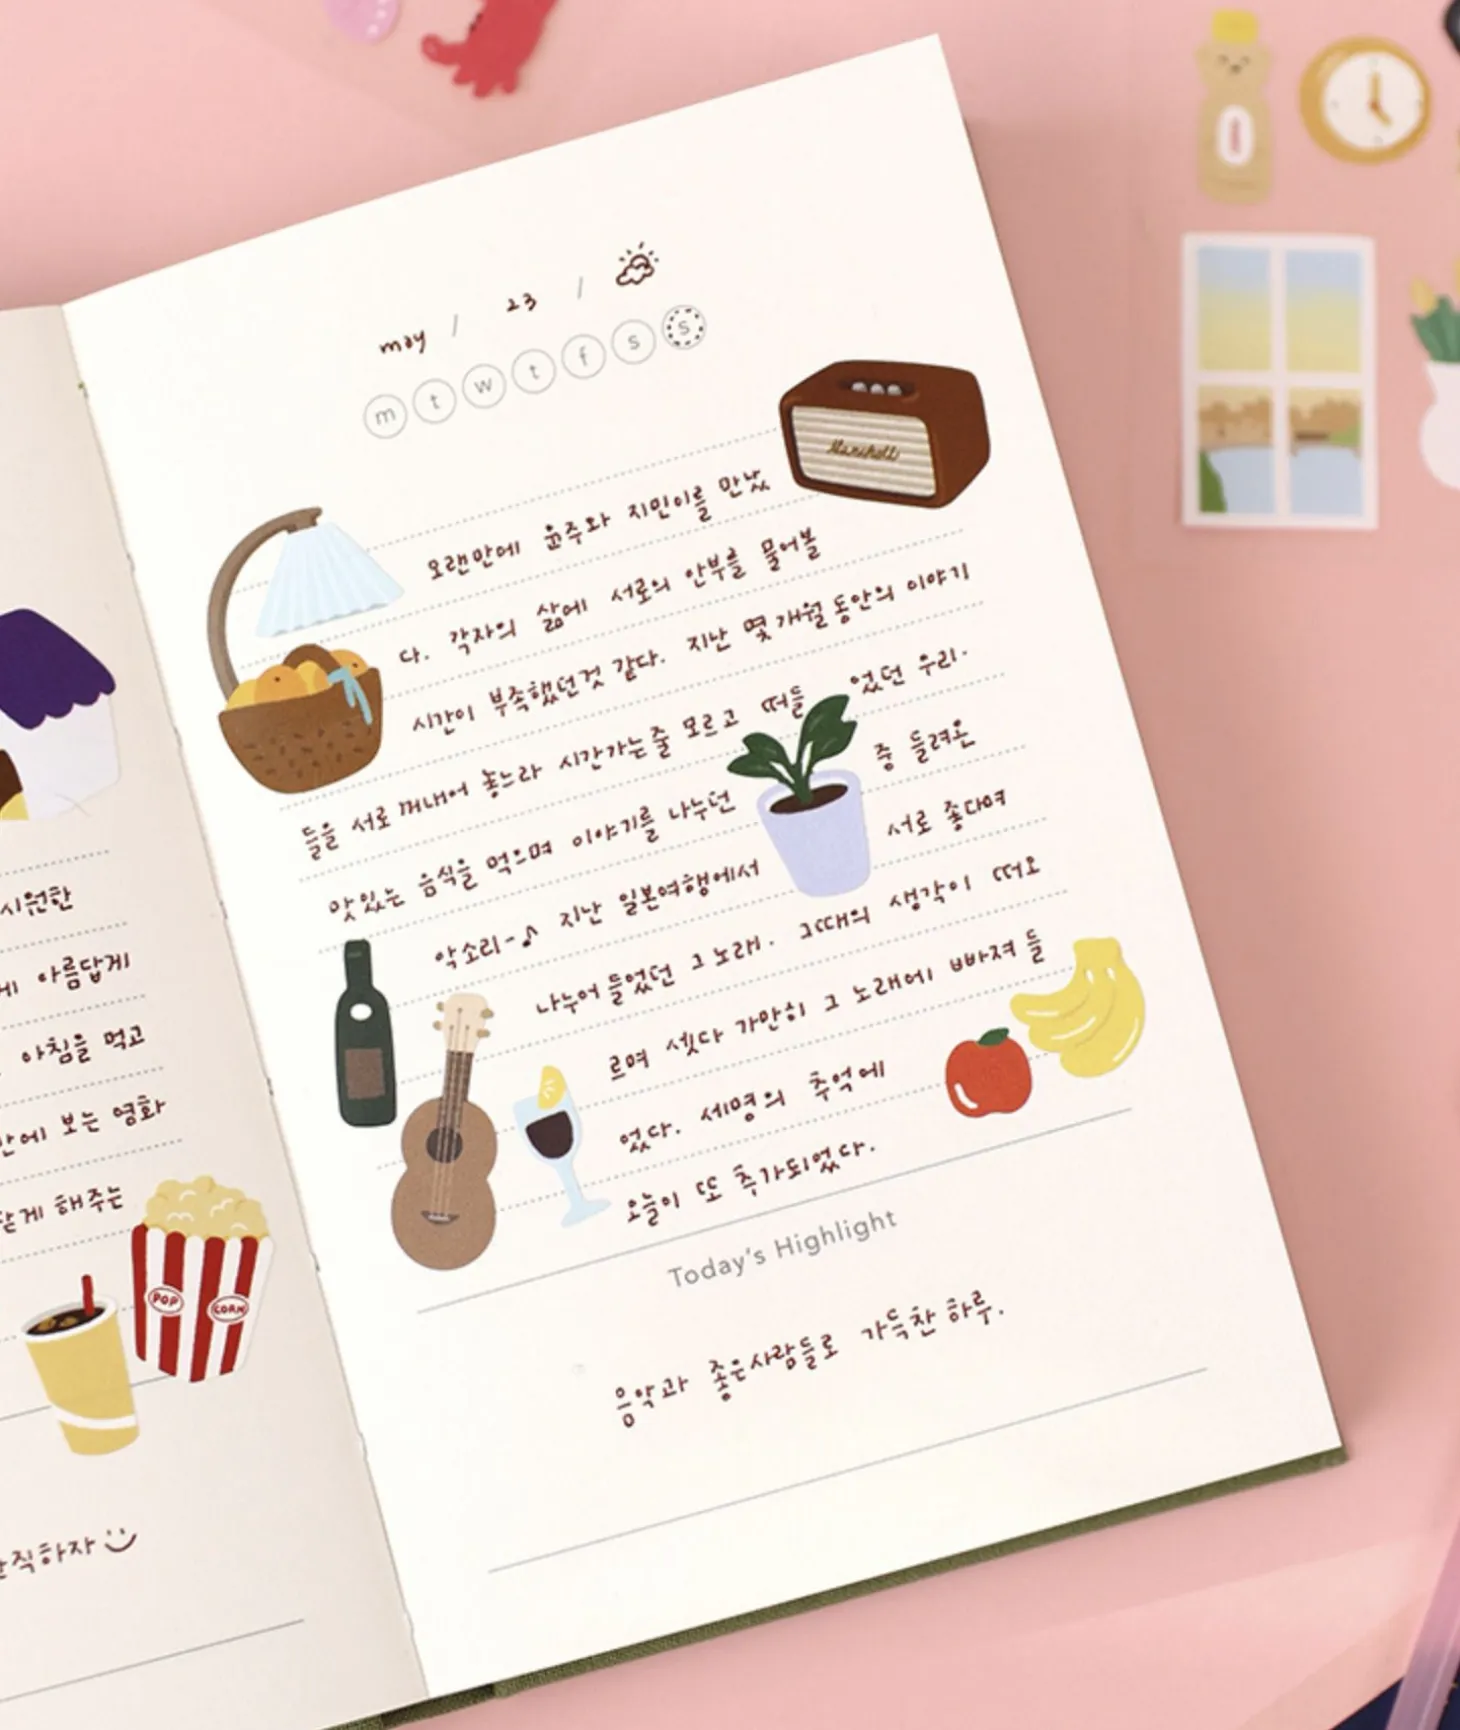 may / 23 /
m t w t f s s
Marshall
오랜만에 윤주와 지민이를 만났
다. 각자의 삶에 서로의 안부를 물어볼
시간이 부족했던것 같다. 지난 몇개월동안의 이야기
들을 서로 꺼내어 놓느라 시간가는줄 모르고 떠들었던 우리.
맛있는 음식을 먹으며 이야기를 나누던 중 들려온
악소리-♪ 지난 일본여행에서 서로 좋다며
나누어 들었던 그 노래. 그때의 생각이 떠오
르며 셋다 가만히 그 노래에 빠져 들
었다. 세명의 추억에
오늘이 또 추가되었다.
Today's Highlight
음악과 좋은사람들로 가득찬 하루.
시원한
게 아름답게
아침을 먹고
만에 보는 영화
게 해주는
POP
CORN
직하자